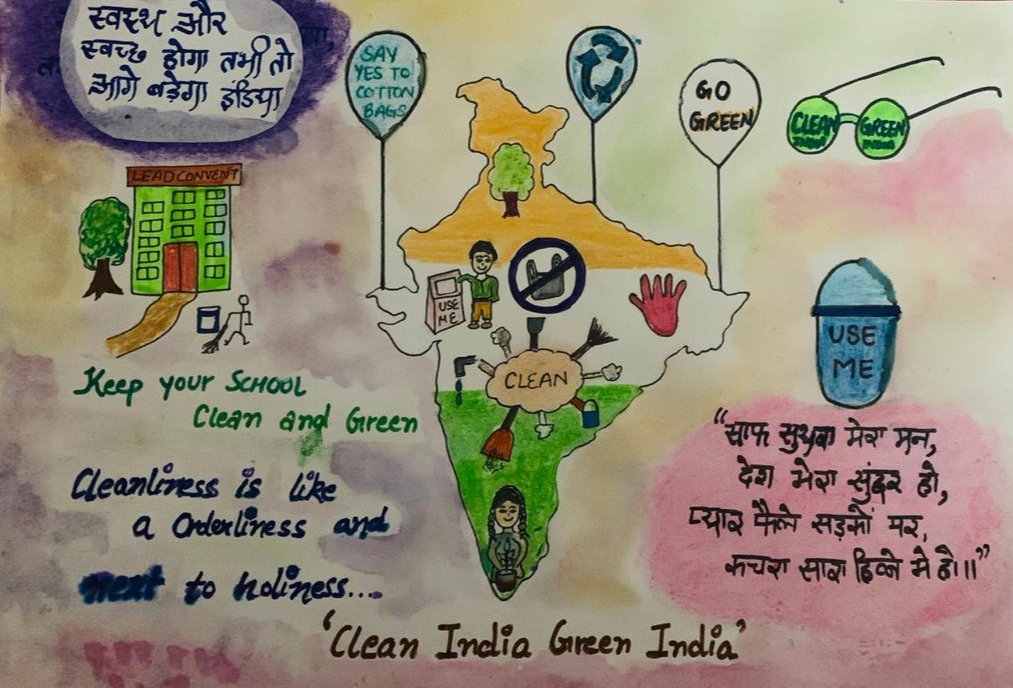 स्वस्थ और
स्वच्छ होगा तभी तो
आगे बढ़ेगा इंडिया
SAY
YES TO
COTTON
BAGS
GO
GREEN
CLEAN
INDIA
GREEN
INDIA
LEAD CONVENT
USE
ME
CLEAN
USE
ME
Keep your SCHOOL
Clean and Green
Cleanliness is like
a Orderliness and
next to holiness...
"साफ सुथरा मेरा मन,
देश मेरा सुंदर हो,
प्यार फैले सड़कों पर,
कचरा सारा डिब्बे मे हो।।"
'Clean India Green India'